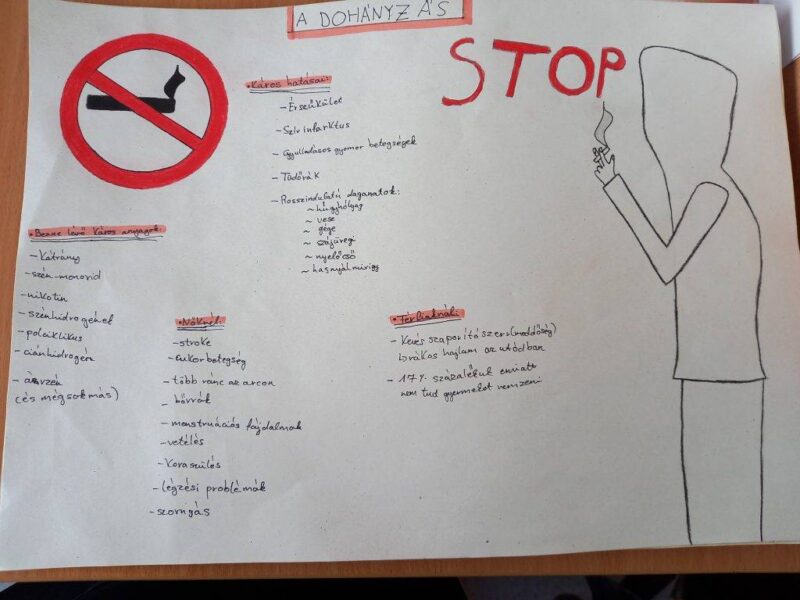 A DOHÁNYZÁS
STOP
• Káros hatásai:
- Érszűkület
- Szívinfarktus
- Gyulladásos gyomor betegségek
- Tüdőrák
- Rosszindulatú daganatok:
~ húgyhólyag
~ vese
~ gége
~ szájüregi
~ nyelőcső
~ hasnyálmirigy
• Benne lévő káros anyagok
- Kátrány
- szén-monoxid
- nikotin
- szénhidrogének
- policiklikus
- ciánhidrogén
- arzén
(és még sok más)
• Nőknél:
- stroke
- cukorbetegség
- több ránc az arcon
- bőrrák
- menstruációs fájdalmak
- vetélés
- Koraszülés
- légzési problémák
- szorongás
• Férfiaknál:
- Kevés szaporító szerv (meddőség)
- rákos hajlam az utódban
- 17% százalékuk emiatt
nem tud gyermeket nemzeni